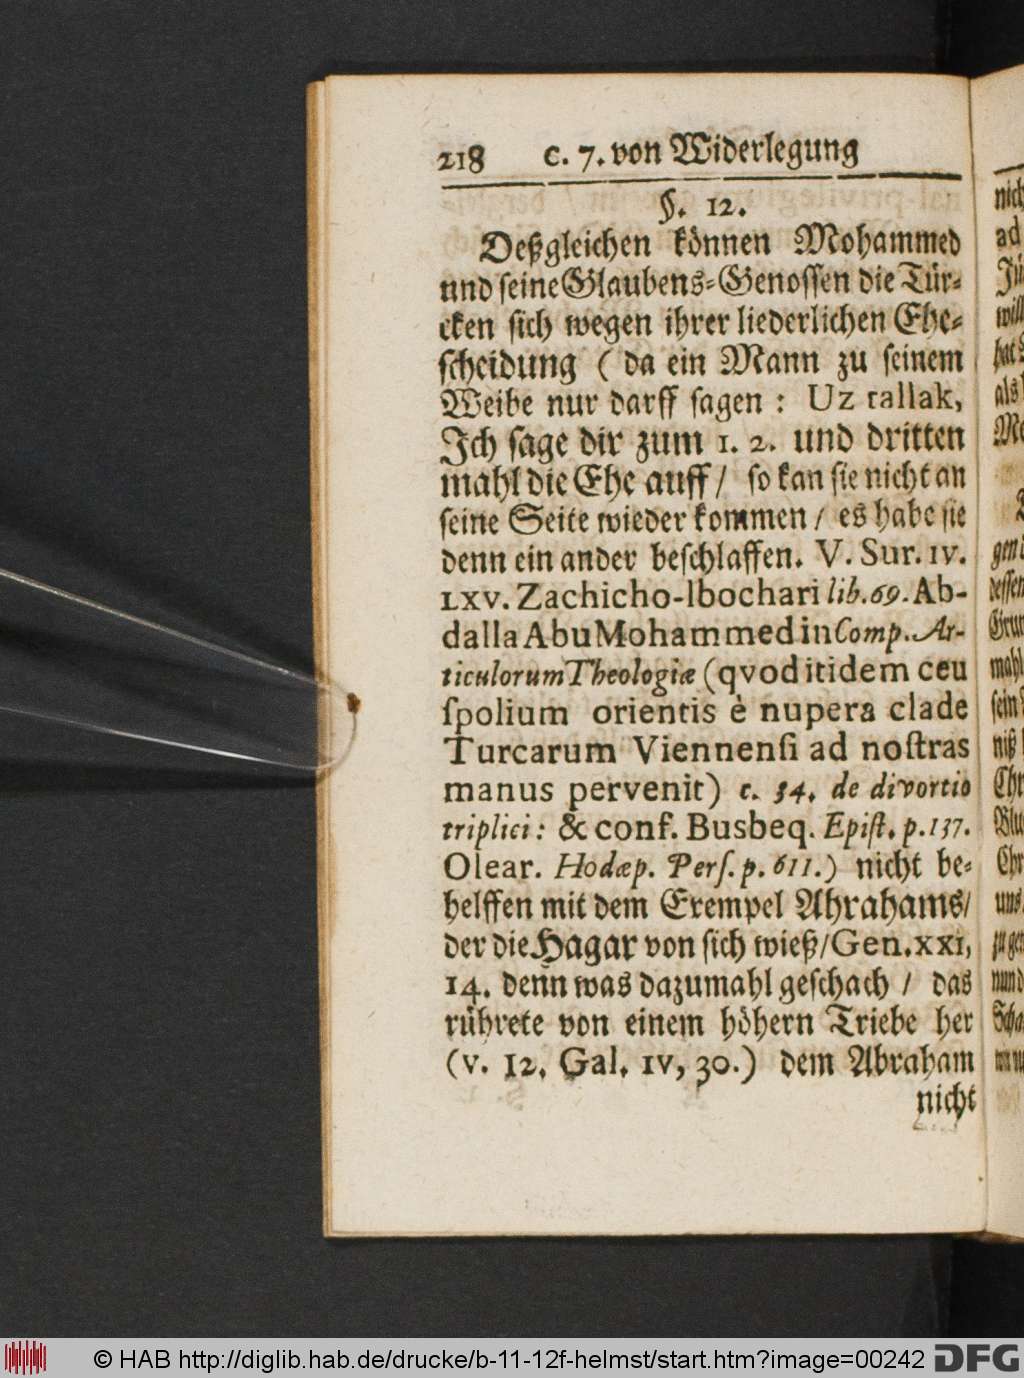 218 c. 7. von Widerlegung
§. 12.
Deßgleichen können Mohammed
und seine Glaubens-Genossen die Tür-
cken sich wegen ihrer liederlichen Ehe-
scheidung ( da ein Mann zu seinem
Weibe nur darff sagen : Uz tallak,
Ich sage dir zum 1. 2. und dritten
mahl die Ehe auff / so kan sie nicht an
seine Seite wieder kommen / es habe sie
denn ein ander beschlaffen. V. Sur. IV.
LXV. Zachicho-lbochari lib. 69. Ab-
dalla Abu Mohammed in Comp. Ar-
ticulorum Theologiæ (qvod itidem ceu
ſpolium orientis è nupera clade
Turcarum Viennenſi ad noſtras
manus pervenit) c. 34. de divortio
triplici : & conf. Busbeq. Epiſt. p. 137.
Olear. Hodæp. Perſ. p. 611.) nicht be-
helffen mit dem Exempel Ahrahams/
der die Hagar von sich wieß/ Gen. XXI,
14. denn was dazumahl geschach / das
rührete von einem höhern Triebe her
(v. 12. Gal. IV, 30.) dem Abraham
nicht
© HAB http://diglib.hab.de/drucke/b-11-12f-helmst/start.htm?image=00242
DFG